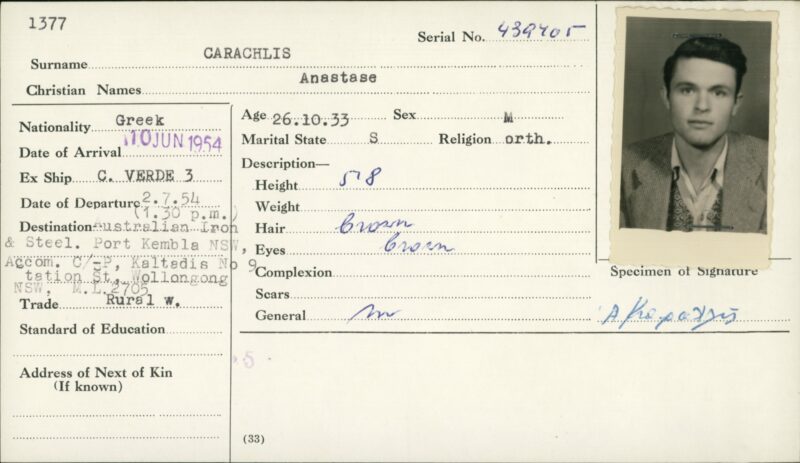 1377
Serial No. 439405
Surname CARACHLIS
Christian Names Anastase
Nationality Greek
Date of Arrival 10 JUN 1954
Ex Ship C. VERDE 3
Date of Departure 2.7.54
(1.30 p.m.)
Destination Australian Iron
& Steel. Port Kembla NSW,
Accom. C/-P, Kaltadis No 9
tation St, Wollongong
NSW, M.L.2705
Trade Rural w.
Standard of Education
Address of Next of Kin
(If known)
Age 26.10.33 Sex M
Marital State S Religion orth.
Description—
Height 5'8
Weight
Hair brown
Eyes brown
Complexion
Scars
General
5
(33)
Specimen of Signature